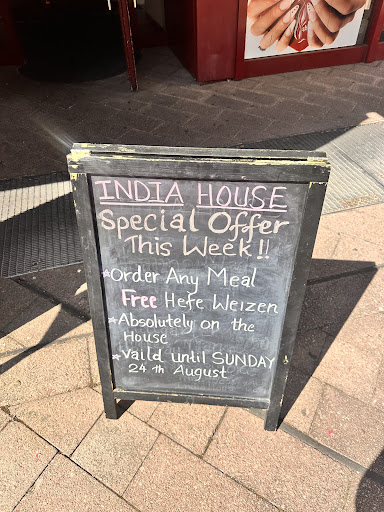 INDIA HOUSE
Special Offer
This Week!!
*Order Any Meal
Free Hefe Weizen
*Absolutely on the
House
*Vaild until SUNDAY
24th August